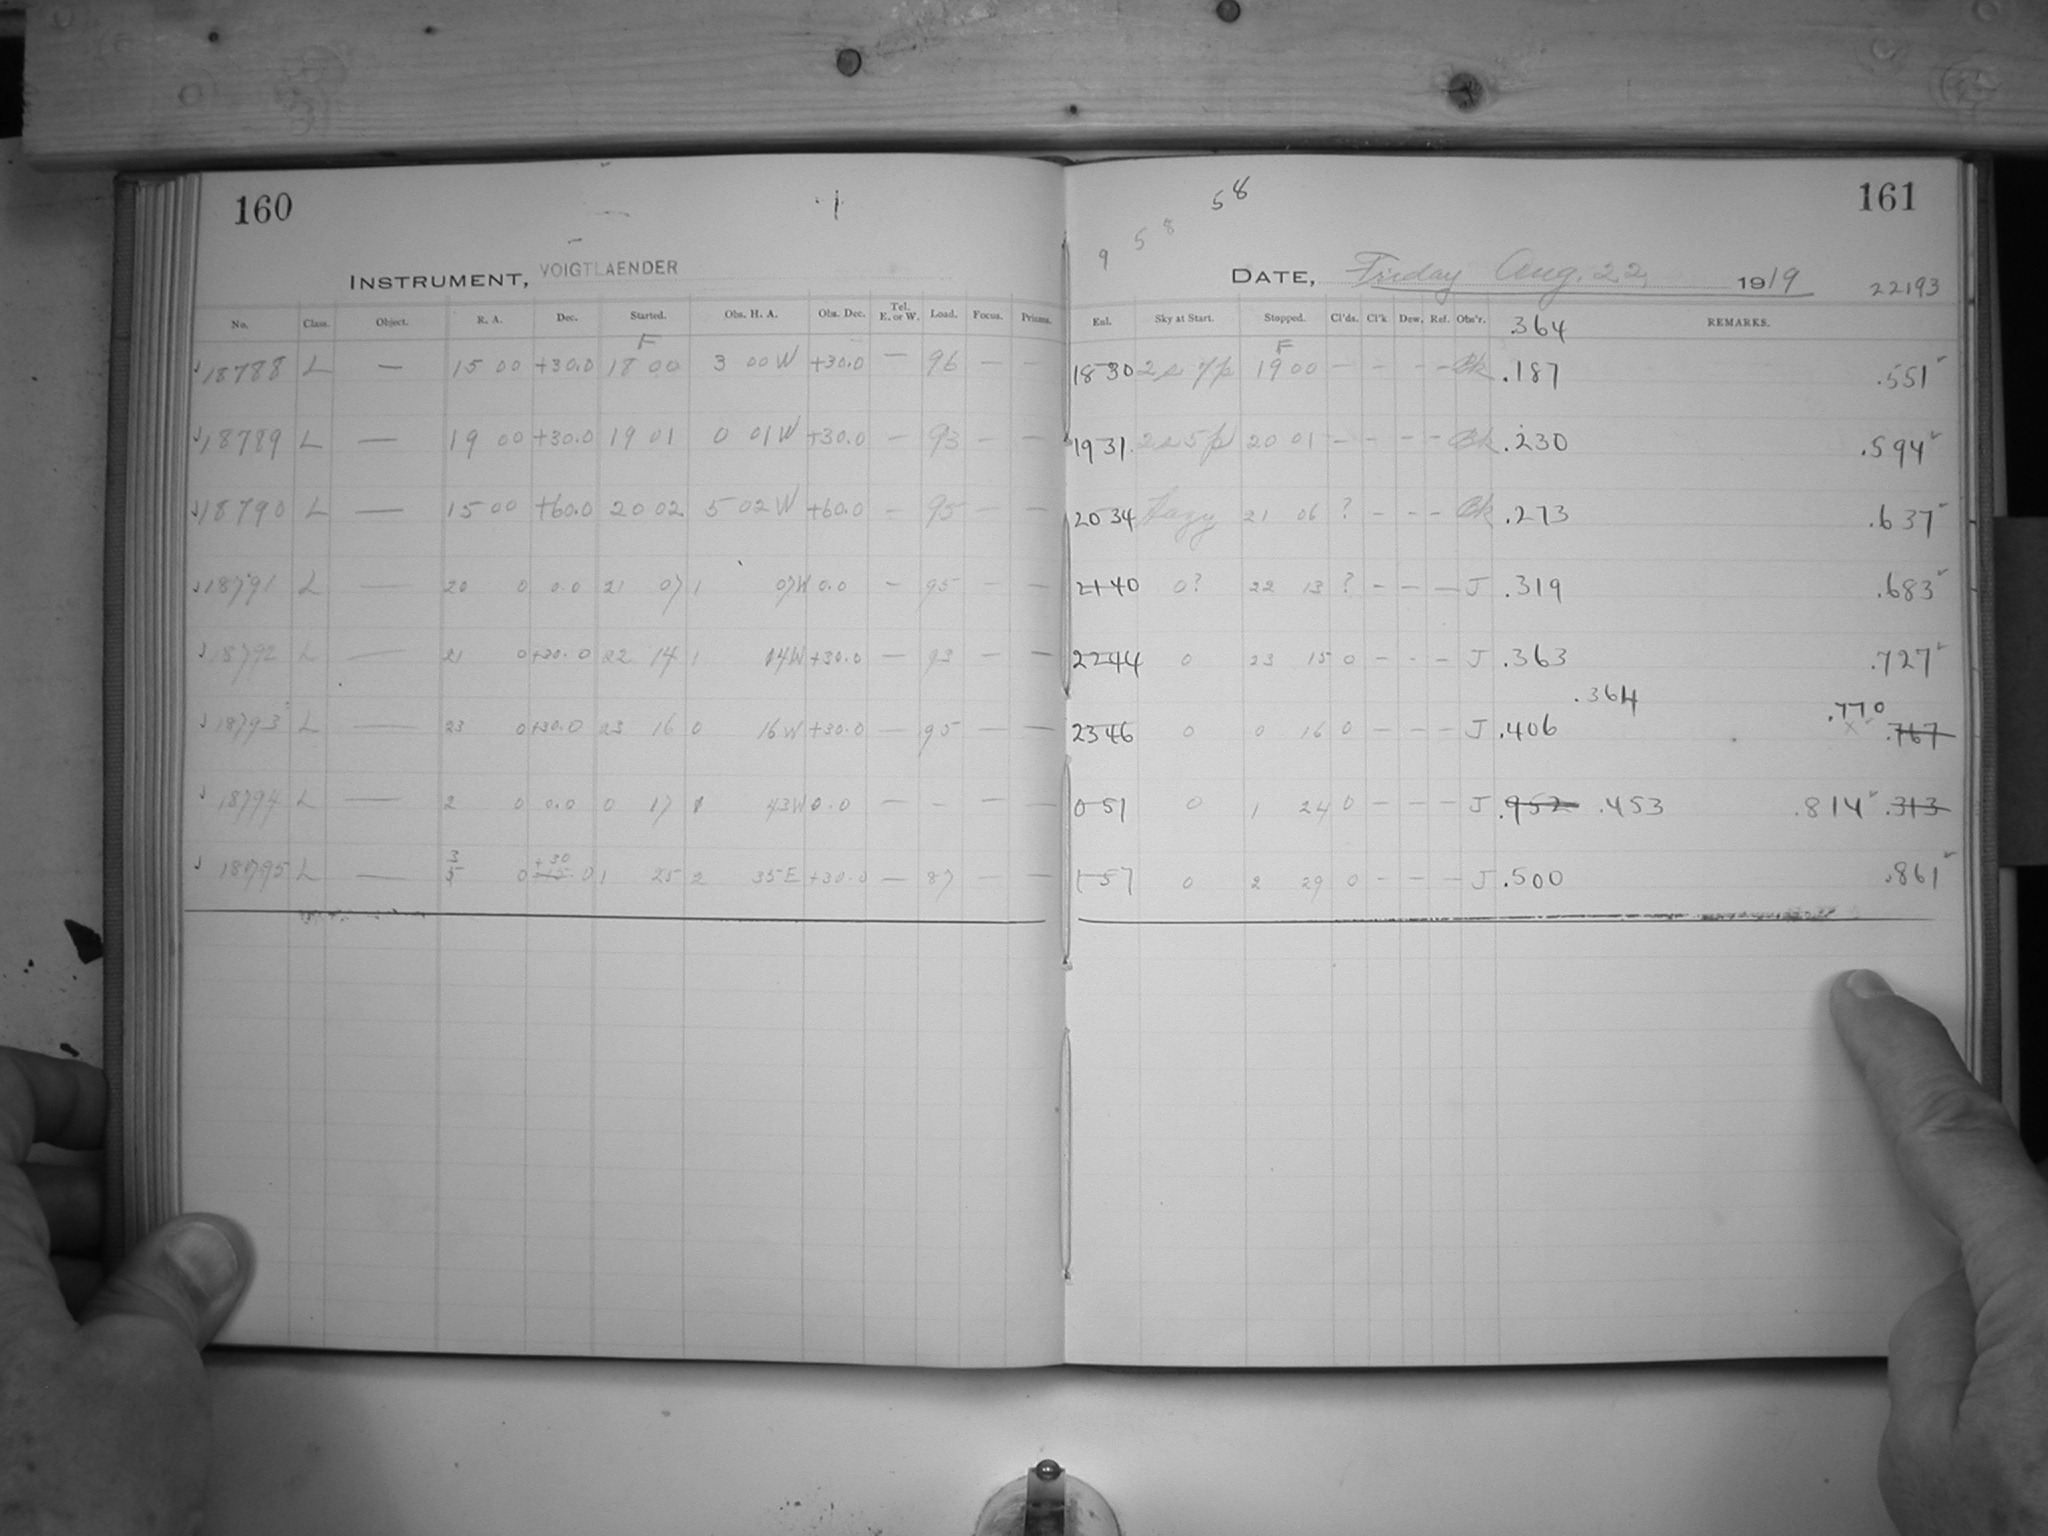 160
INSTRUMENT, VOIGTLAENDER
No. Class. Object. R. A. Dec. Started. Obs. H. A. Obs. Dec. Tel. E. or W. Load. Focus. Prisms.
F
18788 L — 15 00 +30.0 18 00 3 00 W +30.0 — 96 — —
18789 L — 19 00 +30.0 19 01 0 01 W +30.0 — 93 — —
18790 L — 15 00 +60.0 20 02 5 02 W +60.0 — 95 — —
18791 L — 20 0 0.0 21 07 1 07W 0.0 — 95 — —
18792 L — 21 0 +30.0 22 14 1 14W +30.0 — 93 — —
18793 L — 23 0 +30.0 23 16 0 16W +30.0 — 95 — —
18794 L — 2 0 0.0 0 17 43W 0.0 — - — —
3 +30
18795 L — 5 0 1 25 2 35E +30.0 — 87 — —
58
9 5 8
161
DATE, Friday Aug. 22, 1919
22193
Exl. Sky at Start. Stopped. Cl'ds. Cl'k Dew. Ref. Obs'r. REMARKS.
.364
F
18 30 2s 7p 19 00 — - - - Bk .187 .551
19 31 2s 5p 20 01 - - - - Bk .230 .594
20 34 Hazy 21 06 ? - - - Bk .273 .637
21 40 0? 22 13 ? - - — J .319 .683
22 44 0 23 15 0 - - - J .363 .727
.364
.770
23 46 0 0 16 0 - - - J .406 x .767
0 51 0 1 24 0 - - - J .952 .453 .814 .313
1 57 0 2 29 0 - - - J .500 .861